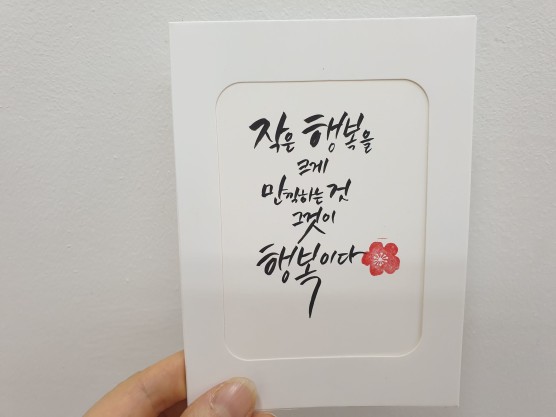 작은 행복을
크게
만끽하는 것
그것이
행복이다